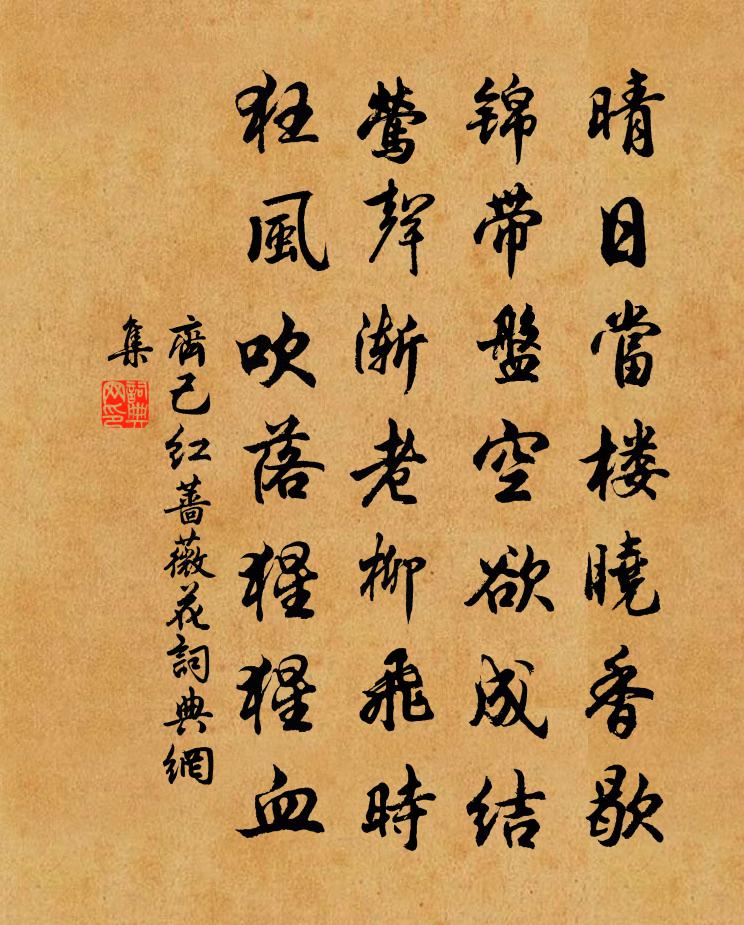 晴日當楼曉香歇
锦带盤空欲成结
莺聲渐老柳飛時
狂風吹落猩猩血
齊己红薔薇花詞典網
集
詞典网印